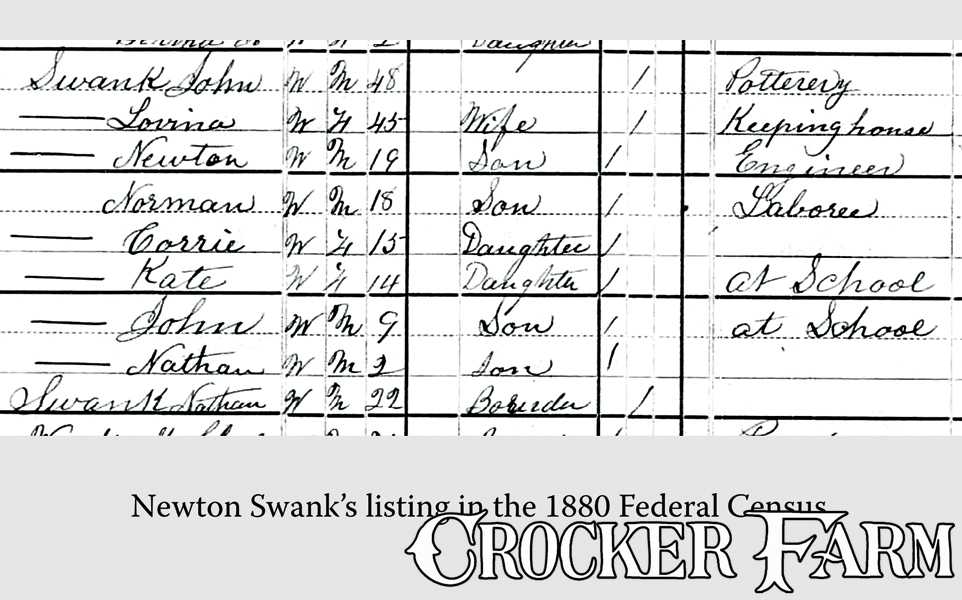 Daughter
Swank John W M 48 / Potterery
Lovina W F 45 Wife / Keeping house
Newton W M 19 Son / Engineer
Norman W M 18 Son / Laborer
Corrie W F 15 Daughter /
Kate W F 14 Daughter / at School
John W M 9 Son / at School
Nathan W M 2 Son /
Swank Nathan W M 22 Boarder /
Newton Swank's listing in the 1880 Federal Census
CROCKER FARM